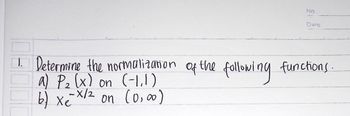 No.
Date
1. Determine the normalization of the following functions.
a) P₂(x) on (-1,1)
b) xe^-x/2 on (0,∞)